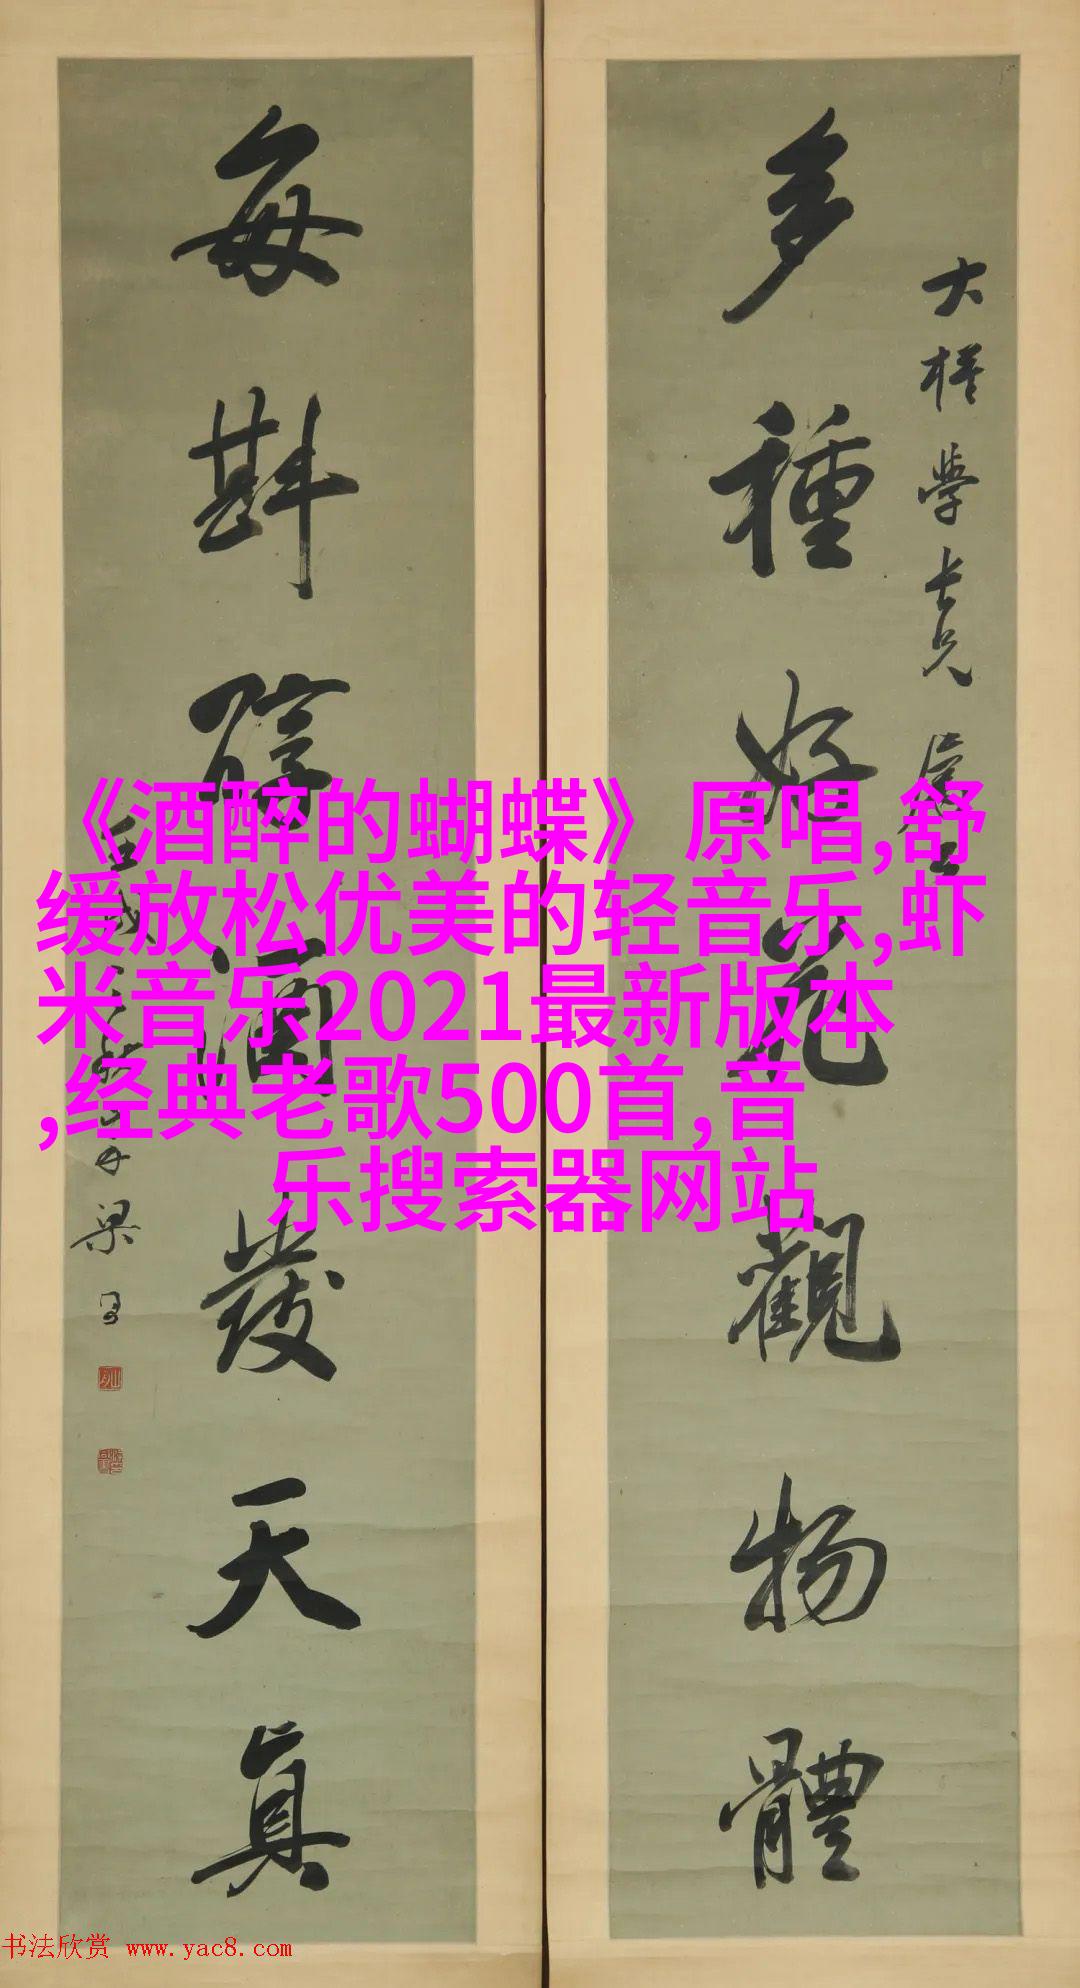 《酒醉的蝴蝶》 原唱,舒
缓放松优美的轻音乐,虾
米音乐2021最新版本
,经典老歌500首,音
乐搜索器网站
大學長兄
多種好花觀物體
每斟醇酒發天真
梁
书法欣赏 www.yac8.com